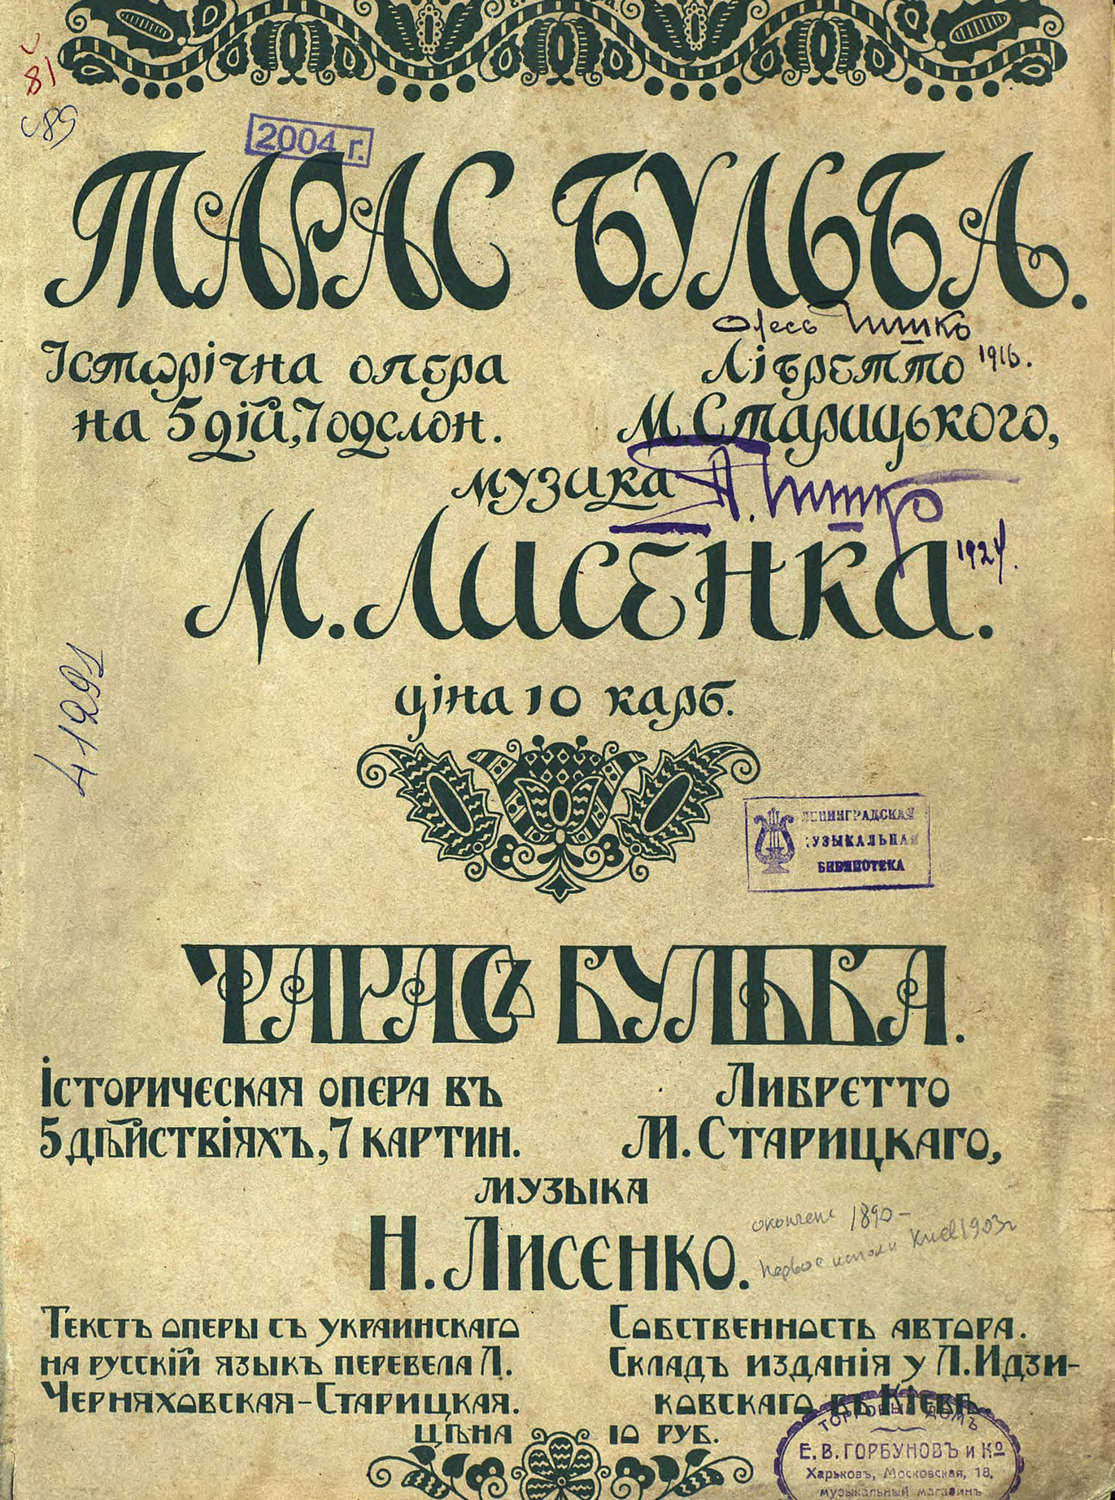 81
89
2004 г.
ТАРАС БУЛЬБА.
Олесь Чишко
1916.
Історічна опера
на 5 дій, 7 одслон.
Лібретто
М. Старицького,
музика
А. Чишко
1924.
М. Лисенка.
ціна 10 карб.
41291
ЛЕНИНГРАДСКАЯ
МУЗЫКАЛЬНАЯ
БИБЛИОТЕКА
ТАРАСЪ БУЛЬБА.
Історическая опера въ
5 дѣйствіяхъ, 7 картин.
Либретто
М. Старицкаго,
музыка
Н. Лисенко.
окончена 1890 –
первое исполн Киев 1903г
Текстъ оперы съ украинскаго
на русскій языкъ перевела Л.
Черняховская-Старицкая.
Собственность автора.
Складъ изданія у Л. Идзи-
ковскаго въ Кіевѣ.
Цѣна 10 руб.
ТОРГОВЫЙ ДОМЪ
Е. В. ГОРБУНОВЪ и Ко
Харьковъ, Московская, 18,
музыкальный магазинъ